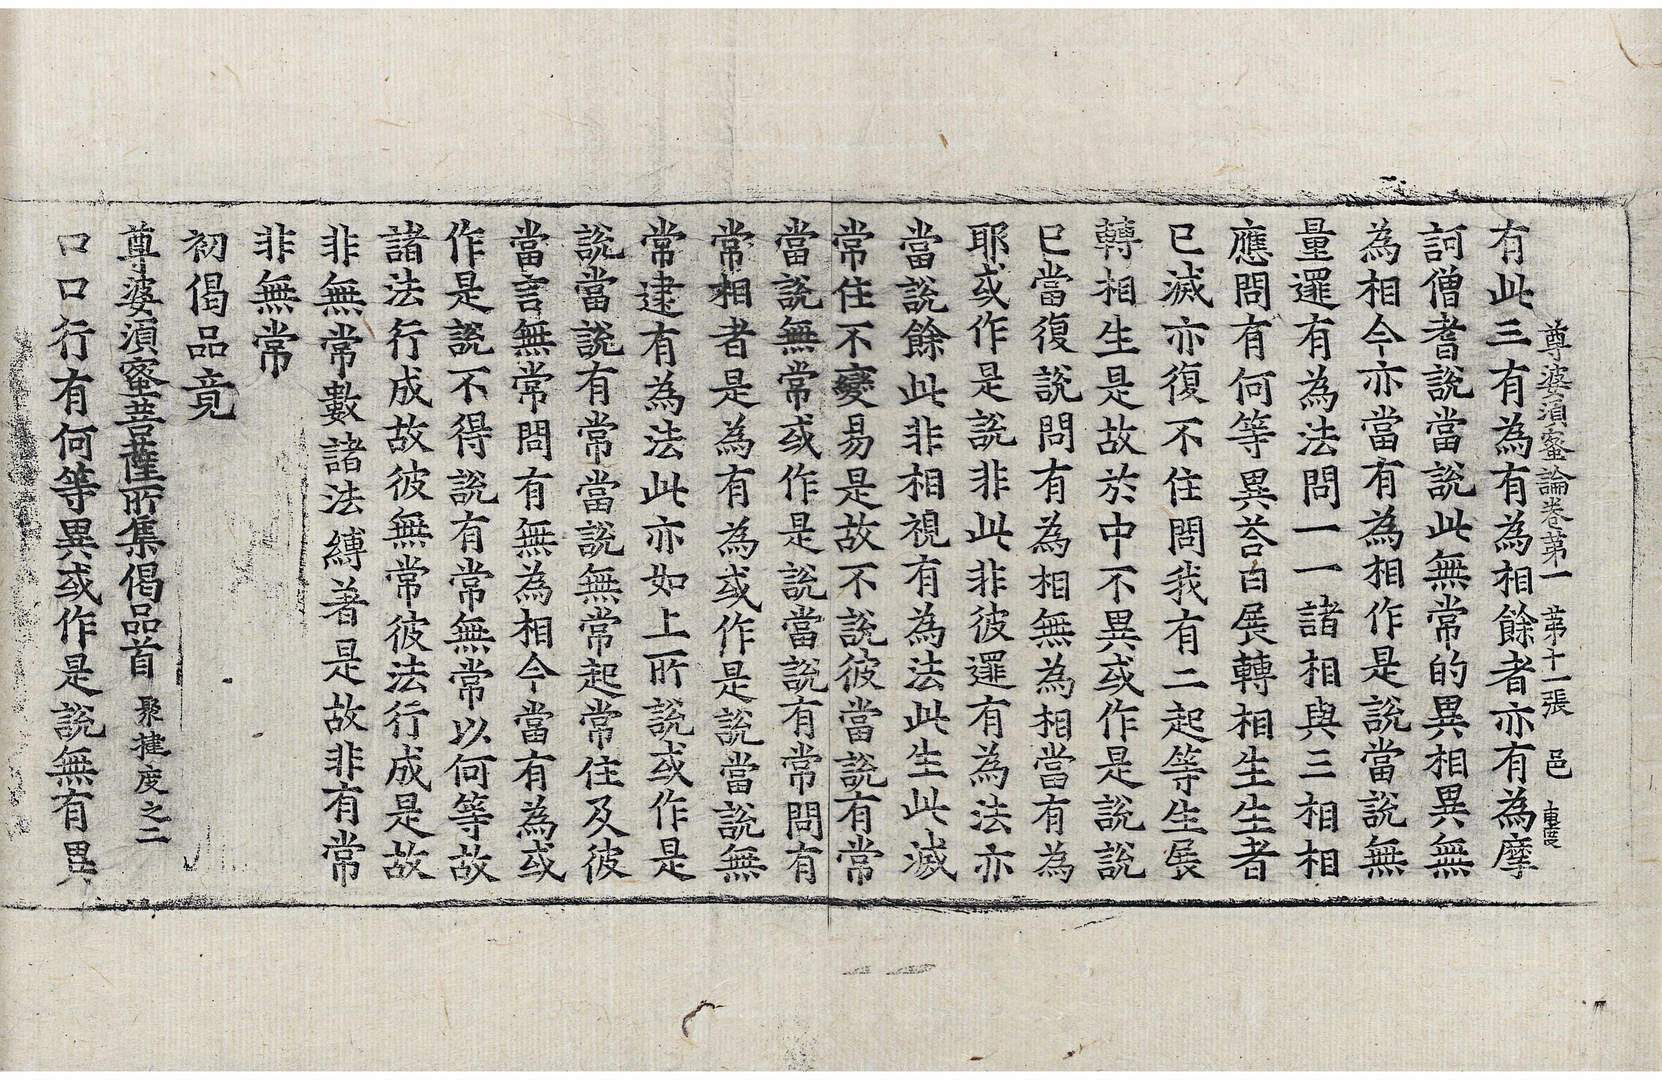 尊婆湏蜜論卷苐一　苐十一張　邑
有此三有為有為相餘者亦有為摩
訶僧耆說當說此無常的異相異無
為相今亦當有為相作是說當說無
量邏有為法問一一諸相與三相相
應問有何等異荅曰展轉相生生者
已滅亦復不住問我有二起等生展
轉相生是故於中不異或作是說說
已當復說問有為相無為相當有為
耶或作是說非此非彼邏有為法亦
當說餘此非相視有為法此生此滅
常住不變易是故不說彼當說有常
當說無常或作是說當說有常問有
常相者是為有為或作是說當說無
常逮有為法此亦如上所說或作是
說當說有常當說無常起常住及彼
當言無常問有無為相今當有為或
作是說不得說有常無常以何等故
諸法行成故彼無常彼法行成是故
非無常數諸法縛著是故非有常
非無常
初偈品竟
尊婆湏蜜菩薩所集偈品首　聚揵度之二
口口行有何等異或作是說無有異